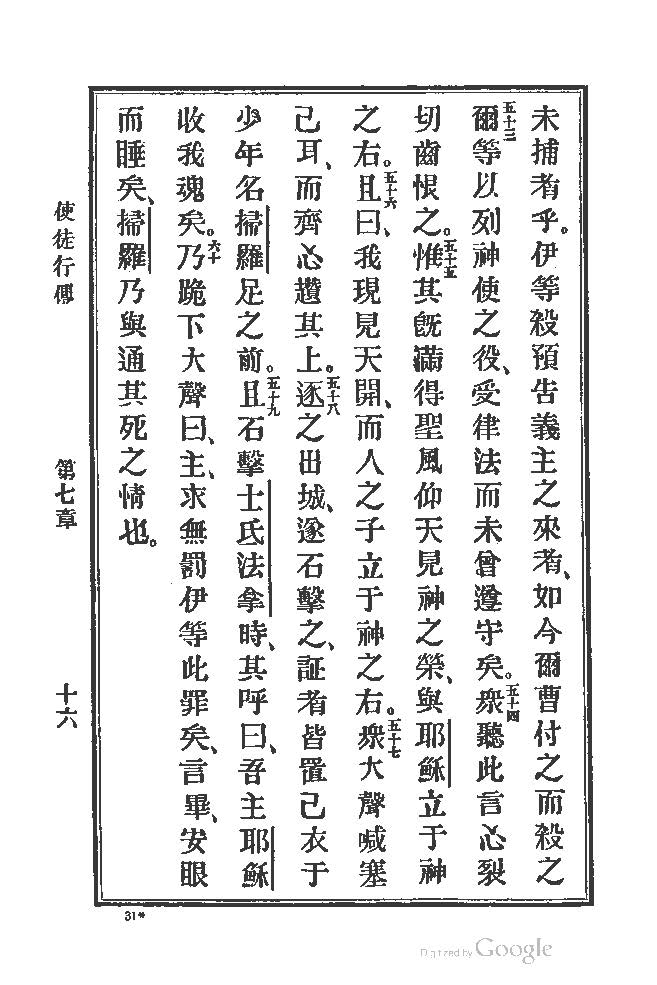 未捕者乎。伊等殺預告義主之來者、如今爾曹付之而殺之
五十三爾等以列神使之役、受律法而未曾遵守矣。五十四衆聽此言心裂
切齒恨之。五十五惟其既滿得聖風仰天見神之榮、與耶穌立于神
之右。五十六且曰、我現見天開、而人之子立于神之右。五十七衆大聲喊塞
己耳、而齊心趲其上。五十八逐之出城、遂石擊之、証者皆置己衣于
少年名掃羅足之前。五十九且石擊士氐法拿時、其呼曰、吾主耶穌
收我魂矣。六十乃跪下大聲曰、主、求無罰伊等此罪矣、言畢、安眼
而睡矣、掃羅乃與通其死之情也。
使徒行傳
第七章
十六
31*
Digitized by Google